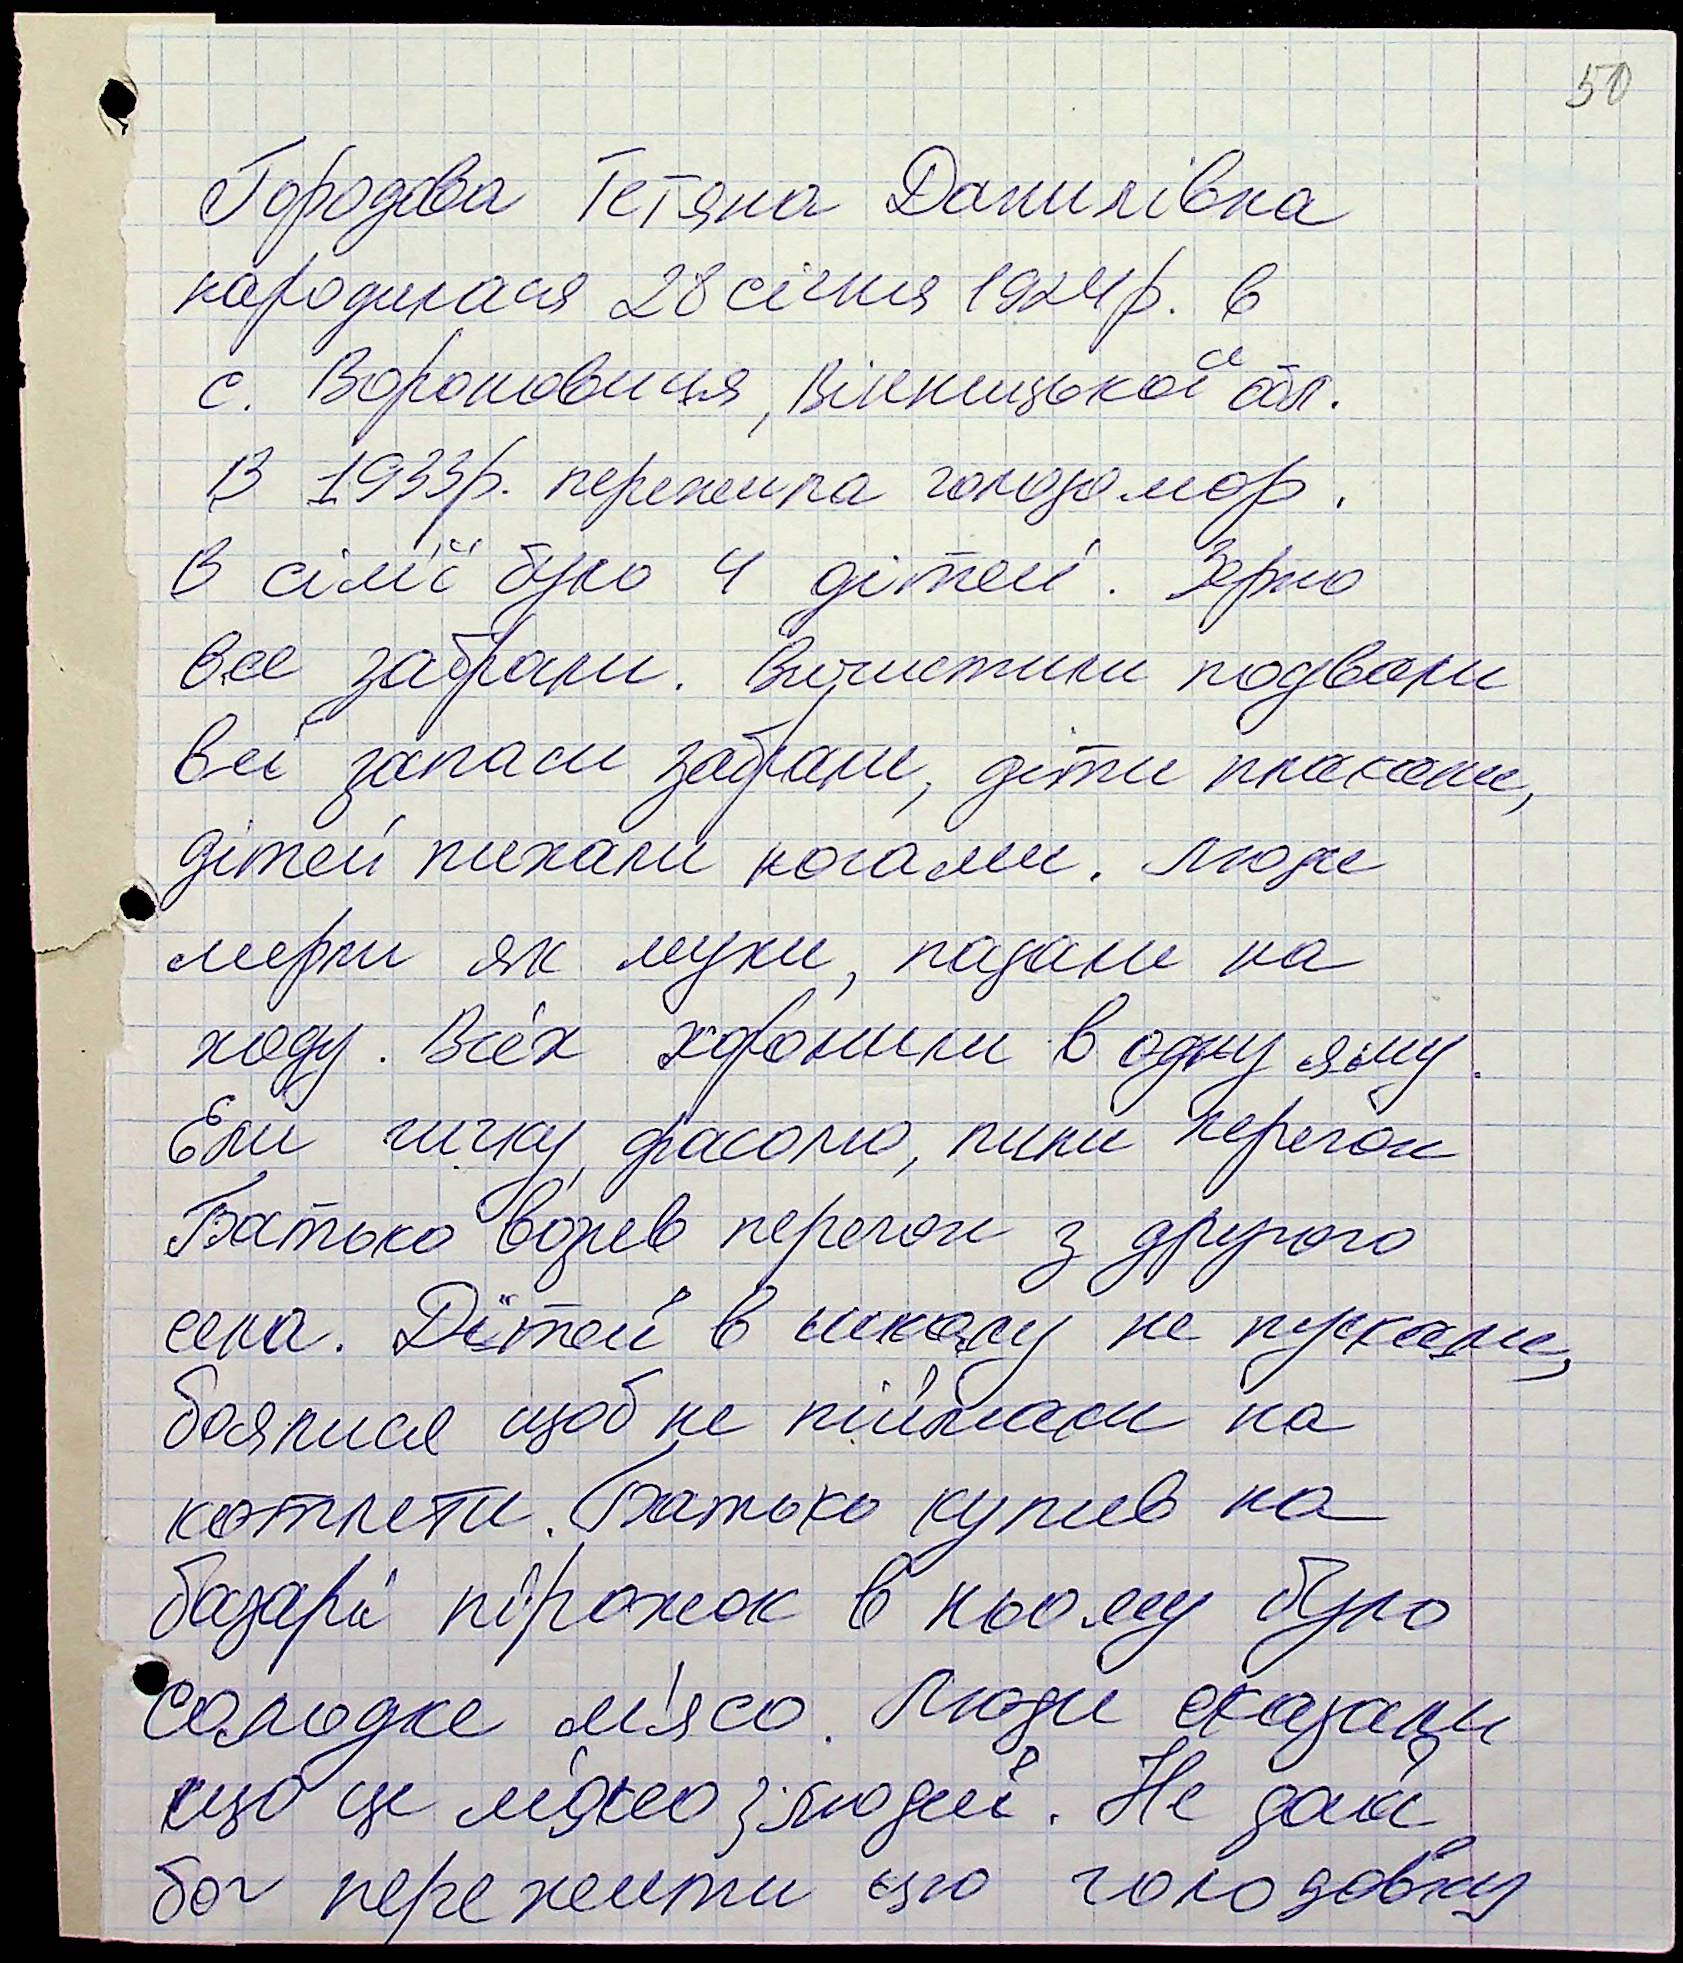 50
Городова Тетяна Данилівна
народилася 28 січня 1924р. в
с. Вороновиця, Вінницької обл.
В 1933р. пережила голодомор.
в сім'ї було 4 дітей. Зерно
все забрали. Вичистили подвали
всі запаси забрали, діти плакали,
дітей пихали ногами. Люди
мерли як мухи, падали на
ходу. Всіх хоронили в одну яму.
Ели гичку, фасолю, пили перегон
Батько возив перегон з другого
села. Дітей в школу не пускали,
боялися щоб не піймали на
котлети. Батько купив на
базарі пірожок в ньому було
солодке м'ясо. Люди сказали
що це мясо з людей. Не дай
бог пережити цю голодовку